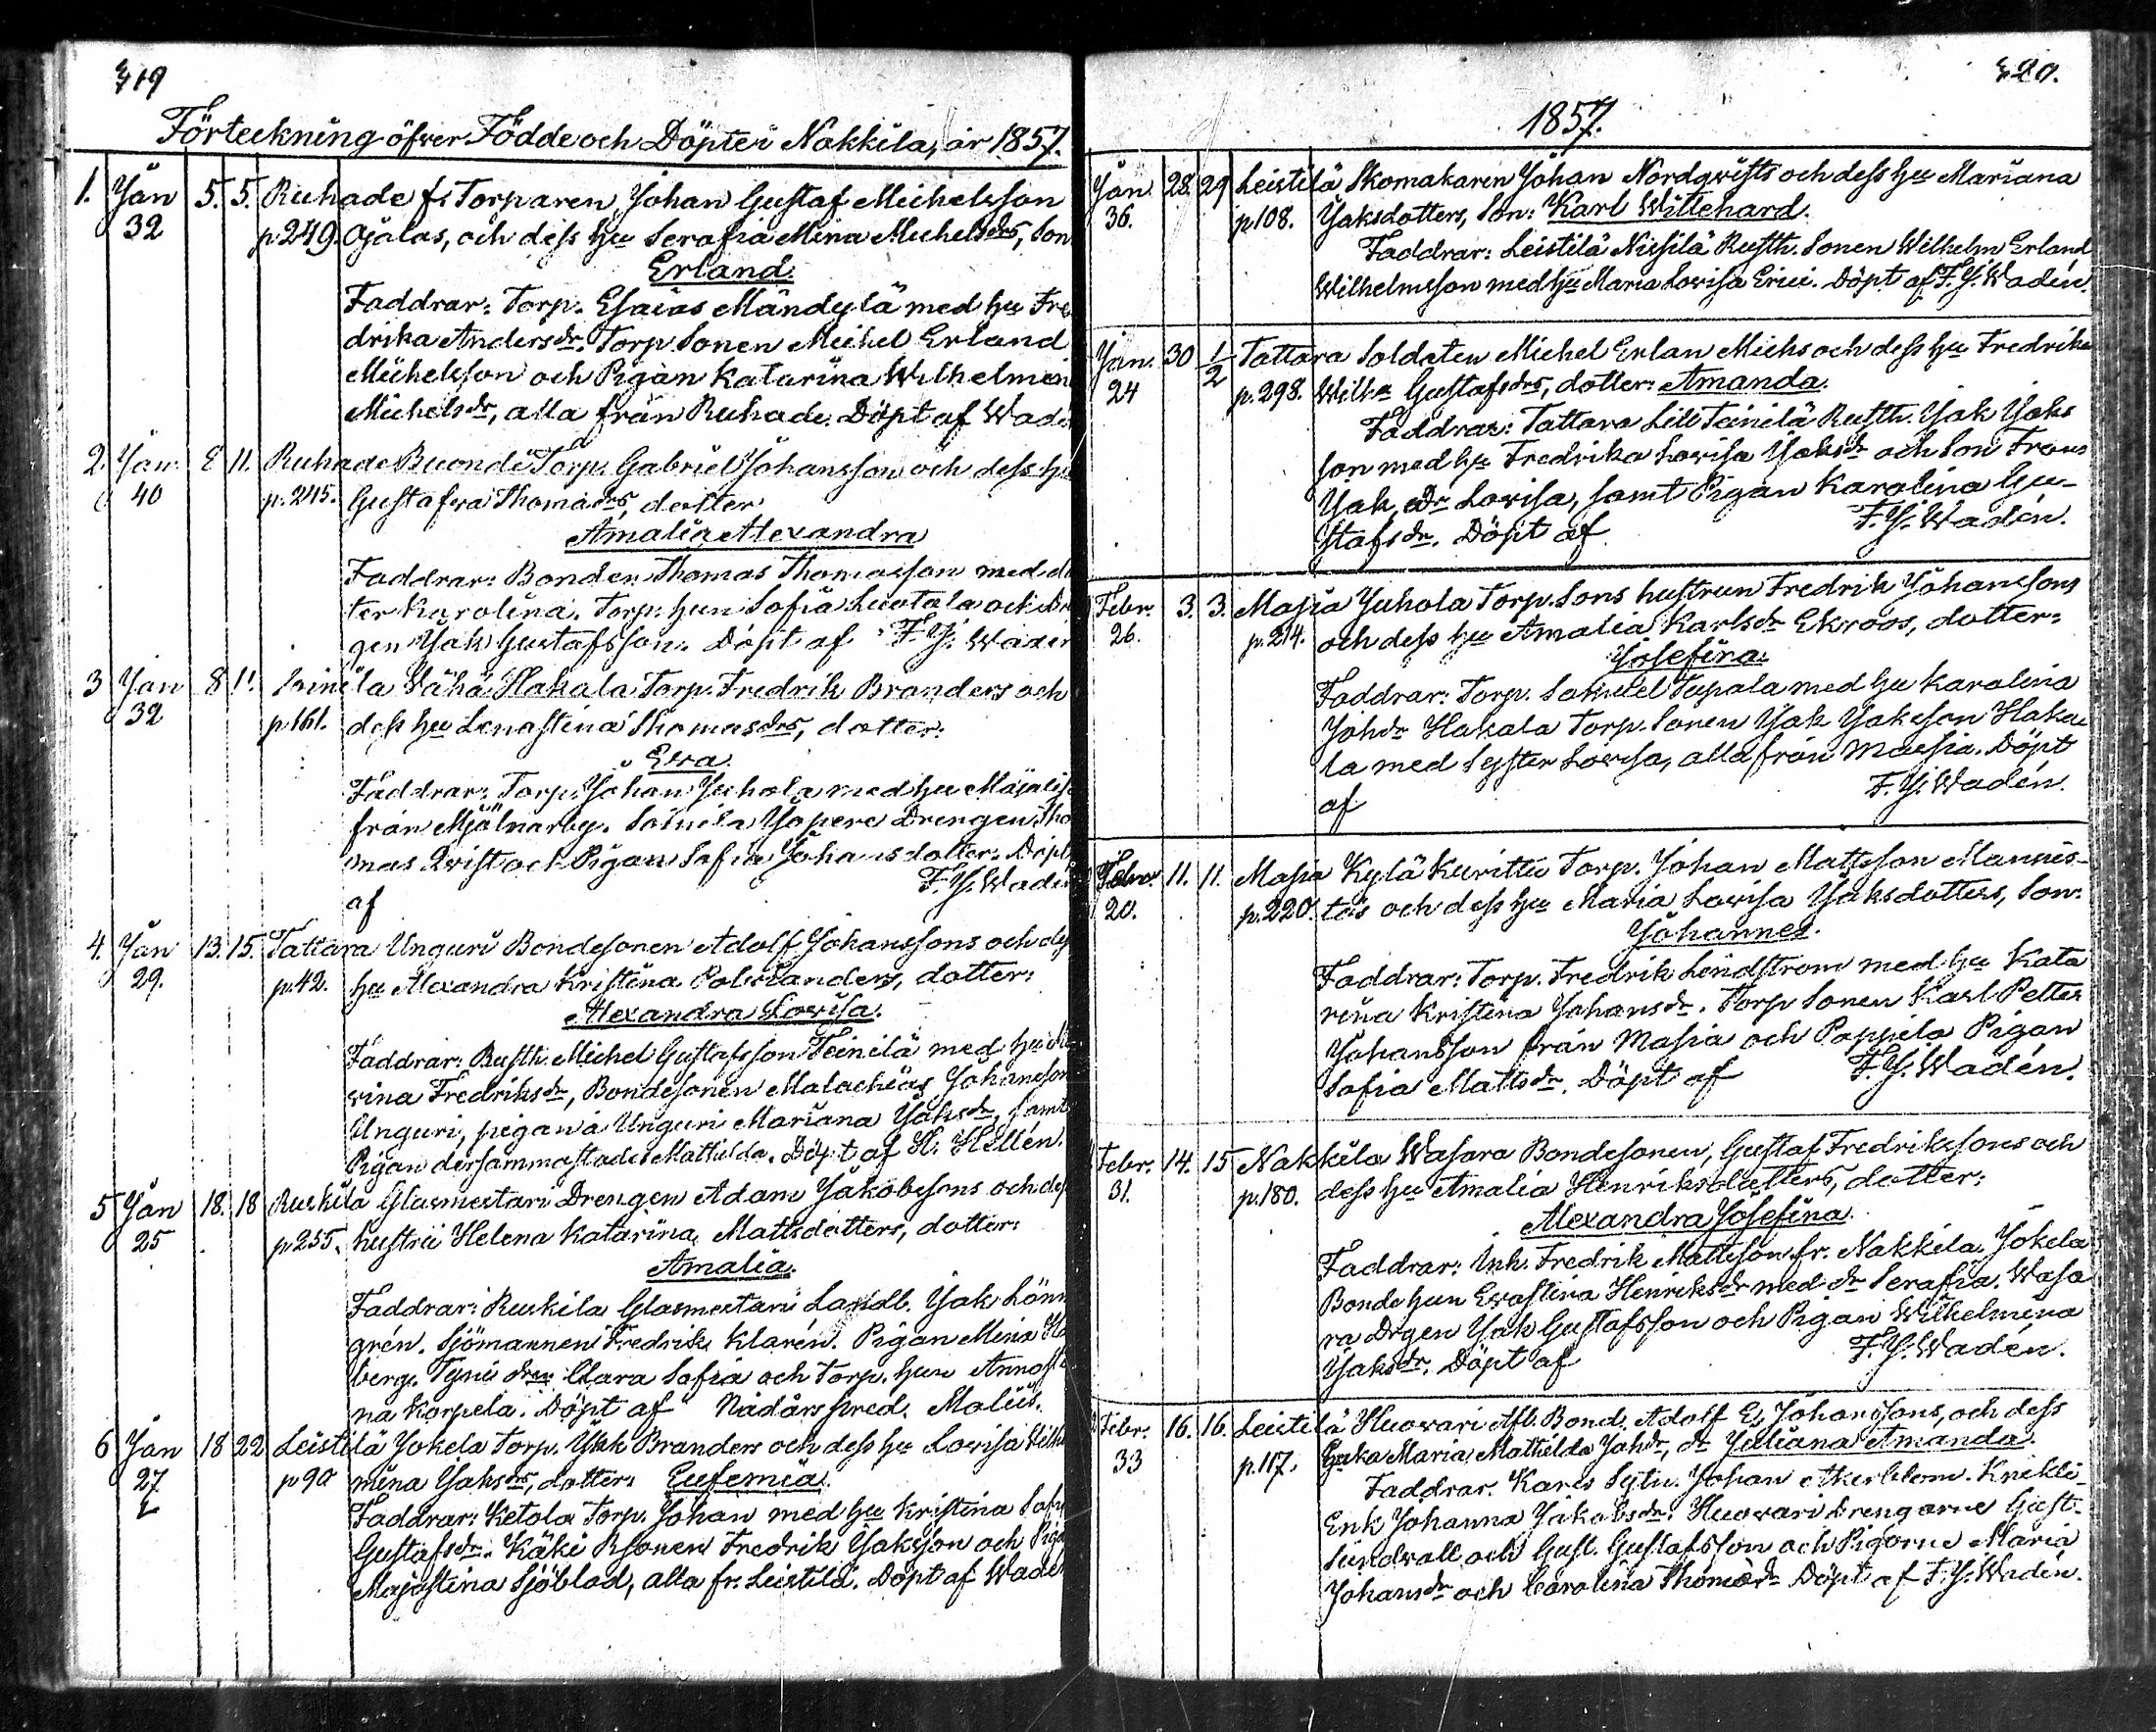 419
Förteckning öfver Födde och Döpte i Nakkila, år 1857.
1. Jan 5. 5. Ruhade fr Torparen Johan Gustaf Michelsson
32 p 249. Ojalas, och dess hu Serafia Mina Michelsdrs, Son
Erland.
Faddrar: Torp. Esaias Mändylä med hu Fre
drika Andersdr. Torp. Sonen Michel Erland
Michelsson och Pigan Katarina Wilhelmin
Michelsdr, alla från Ruhade. Döpt af Wadé
2. Jan. 8 11. Ruhade Buondi Torp. Gabriel Johansson och dess hu
40 p. 245. Gustafva Thomasdrs, dotter
Amalia Alexandra
Faddrar: Bonden Thomas Thomasson med dt
ter Karolina. Torp. hun Sofia Luotala och Dr
gen Jak Gustafsson. Döpt af F. J. Waden
3 Jan 8 11. Soinila Wähä Hakala Torp. Fredrik Branders och
32 p 161. dess hu Lenastina Thomasdrs, dotter:
Eva.
Faddrar: Torp. Johan Juhola med hu Majalis
från Mjölnarby. Soinila Jopere Drengen Tho
mas Qvist och Pigan Sofia Johansdotter. Döpt
af F. J. Wadén
4. Jan 13. 15. Tattara Unguri Bondesonen Adolf Johanssons och des
29. p. 42. hu Alexandra Kristina Polvianders, dotter:
Alexandra Lovisa.
Faddrar: Rusth. Michel Gustafsson Teinilä med hu
vina Fredriksdr, Bondesonen Malachias Johansson
Unguri, pigan å Unguri Mariana Jaksdr, samt
Pigan dersammastades Mathilda. Döpt af H. Hellén.
5 Jan 18. 18 Ruskila Glasmestari Drengen Adam Jakobssons och des
25 p 255. hustru Helena Katarina Mattsdotters, dotter:
Amalia.
Faddrar: Ruskila Glasmestari Landb. Jak Lönn
grén. Sjömannen Fredrik Klarén. Pigan Mina
berg. Tyni drn Clara Sofia och Torp. hun Annasti
na Korpela. Döpt af Nådårspred. Molüs.
6 Jan 18 22 Leistilä Jokela Torp. Isak Branders och dess hu Lovisa Wilhel
27 p 90 mina Jaksdrs, dotter: Eufemia.
Faddrar: Ketola Torp. Johan med hu Kristina Sofia
Gustafsdr. Käki Rsonen Fredrik Jaksson och Piga
Majastina Sjöblad, alla fr. Leistilä. Döpt af Waden
420.
1857.
Jan. 28. 29 Leistilä Skomakaren Johan Nordqvists och dess hu Mariana
36. p 108. Jaksdotters, Son: Karl Wittehard.
Faddrar: Leistilä Nissilä Rusth. Sonen Wilhelm Erland
Wilhelmsson med hu Maria Lovisa Erici. Döpt af F. J. Wadén.
Jan. 30 1/2 Tattara Soldaten Michel Erlan Michs och dess hu Fredrika
24 p. 298. Wilha Gustafsdrs, dotter: Amanda.
Faddrar: Tattara Lill Teinilä Rusth. Jak Jaks
son med hu Fredrika Lovisa Jaksdr och Son Frans
Jak, dr Lovisa, samt Pigan Karolina Gu-
stafsdr. Döpt af F. J. Wadén.
Febr. 3. 3. Masia Juhola Torp. Sons hustrun Fredrik Johanssons
26. p. 214. och dess hu Amalia Karlsdr Ekroos, dotter:
Josefina.
Faddrar: Torp. Samuel Tupala med hu Karolina
Johdr Hakala Torp. Sonen Jak Jaksson Haka
la med Syster Lovisa, alla från Massia. Döpt
af F. J. Wadén.
Febr. 11. 11. Masia Kylä Kurittu Torp. Johan Mattsson Mannis-
20. p. 220. tos och dess hu Maria Lovisa Jaksdotters, Son:
Johannes.
Faddrar: Torp. Fredrik Lindstrom med hu Kata
rina Kristina Johansdr. Torp Sonen Karl Petter
Johansson från Masia och Pappila Pigan
Sofia Mattsdr. Döpt af F. J. Wadén.
Febr. 14. 15 Nakkila Wasara Bondesonen, Gustaf Fredrikssons och
31. p. 180. dess hu Amalia Henriksdotters, dotter:
Alexandra Josefina.
Faddrar: Inh. Fredrik Mattsson fr. Nakkila. Jokela
Bonde hun Evastina Henriksdr med dr Serafia. Wasa
ra Drgen Jak Gustafsson och Pigan Wilhelmina
Jaksdr. Döpt af F. J. Wadén.
Febr. 16. 16. Leistilä Huovari Afl. Bond. Adolf E. Johanssons, och dess
33 p. 117. Enka Maria Mathilda Johdr, dr Juliana Amanda.
Faddrar. Karls Sytn. Johan Akerblom. Knekti
Enk Johanna Jakobsdr. Huovari Drengarne Gust.
Sundvall och Gust. Gustafsson och Pigorne Maria
Johansdr och Carolina Thomasdr. Döpt af F. J. Wadén.